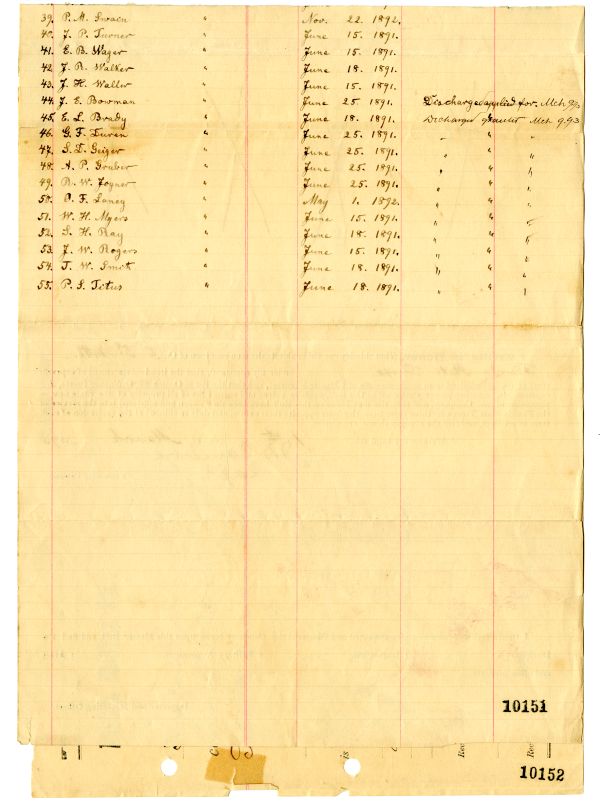 39. P. M. Swain " Nov. 22. 1892.
40. J. P. Turner " June 15. 1891.
41. E. B. Wager " June 15. 1891.
42. J. R. Walker " June 18. 1891.
43. J. H. Waller " June 15. 1891.
44. J. E. Bowman " June 25 1891. Discharge applied for. Mch
45. E. L. Brady " June 18. 1891. Discharge Mch 9.93
46. G. F. " June 25. 1891. " " "
47. S. D. Geiger " June 25. 1891. " " "
48. A. P. Gruber " June 25. 1891. " " "
49. R. W. Joyner " June 25. 1891. " " "
50. F. Laney " May 1. 1892. " " "
51. W. H. Myers " June 15. 1891. " " "
52. S. H. Ray " June 18. 1891. " " "
53. J. W. Rogers " June 15. 1891. " " "
54. T. W. " June 18. 1891. " " "
55. P. S. Titus " June 18. 1891. " " "
10151
is
Rec
Rec
10152